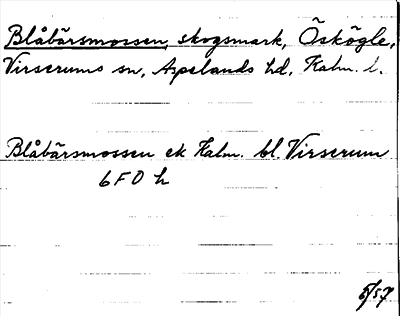 Blåbärsmossen, skogsmark, Öskögle,
Virserums sn, Aspelands hd, Kalm. l.
Blåbärsmossen ek Kalm. bl. Virserum
6 F 0 h
5/57